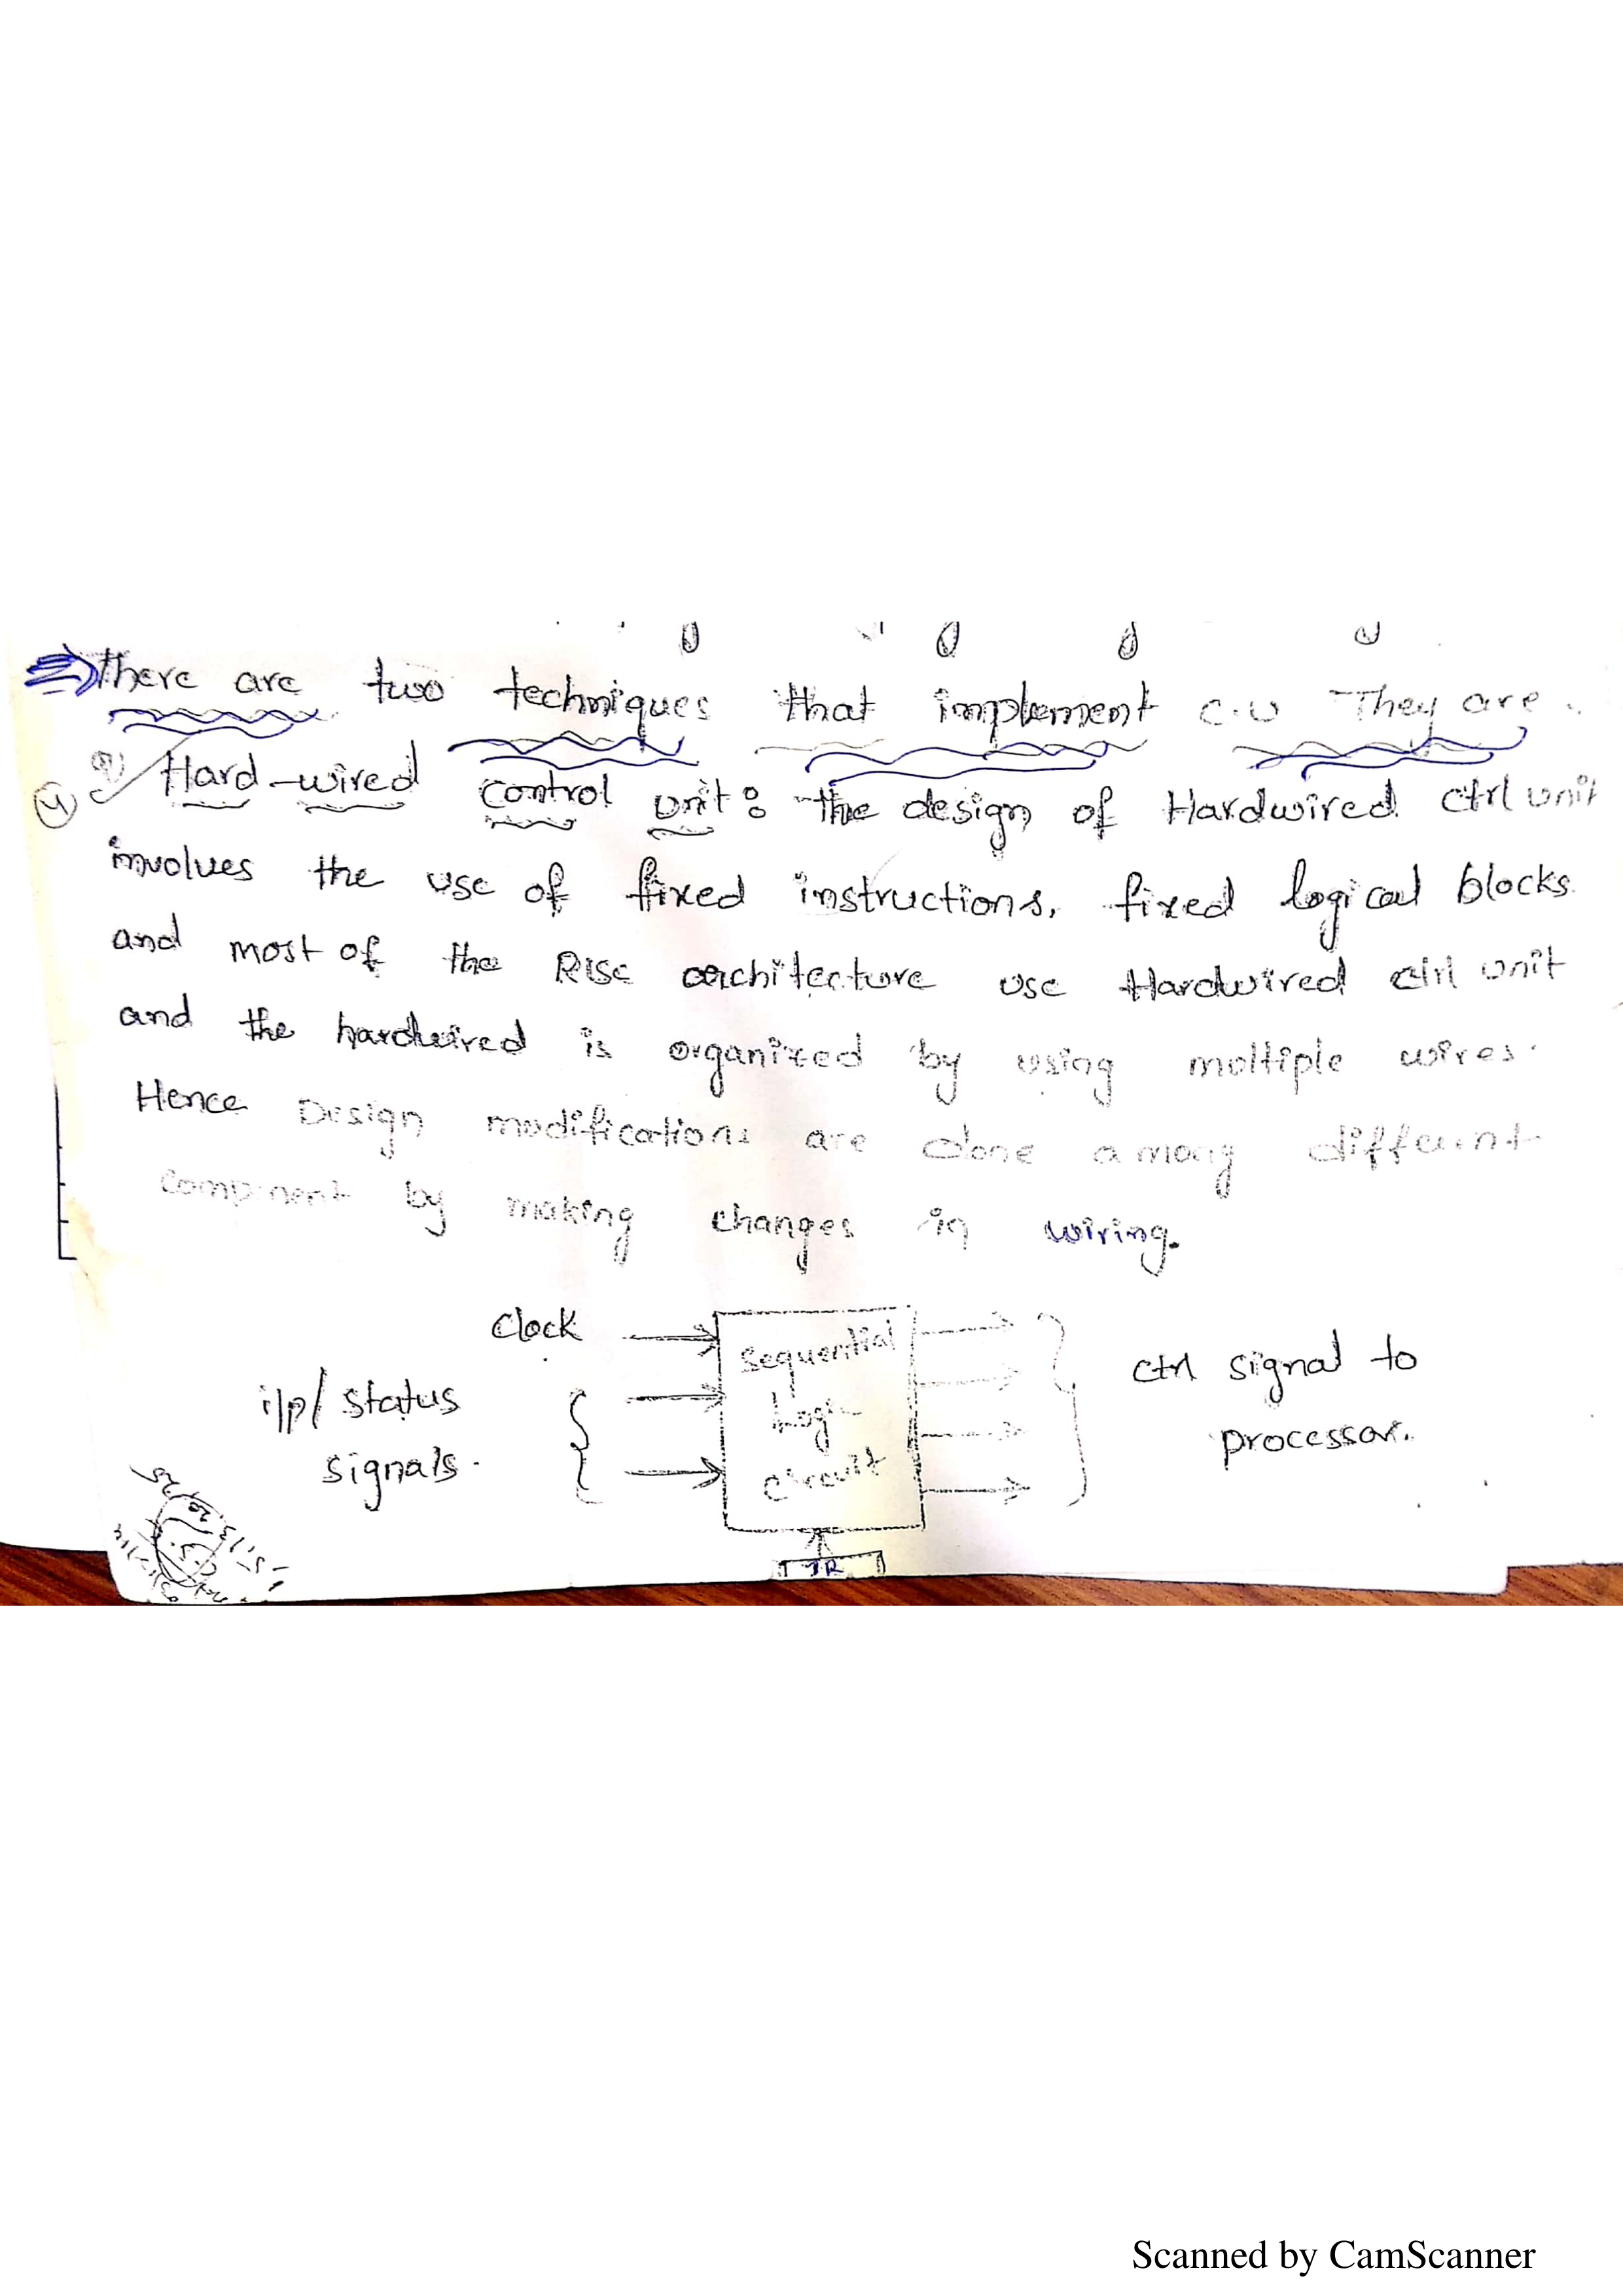 ⇒ There are two techniques that implement C.U They are.
④ Hard-wired control unit: The design of Hardwired ctrl unit
involves the use of fixed instructions, fixed logical blocks
and most of the RISC architecture use Hardwired ctrl unit
and the hardwired is organized by using moltiple wires.
Hence Design modifications are done among different
component by making changes in wiring.
Clock
Sequential
Logic
Circuit
i/p/ status
signals.
ctrl signal to
processor.
IR
Scanned by CamScanner